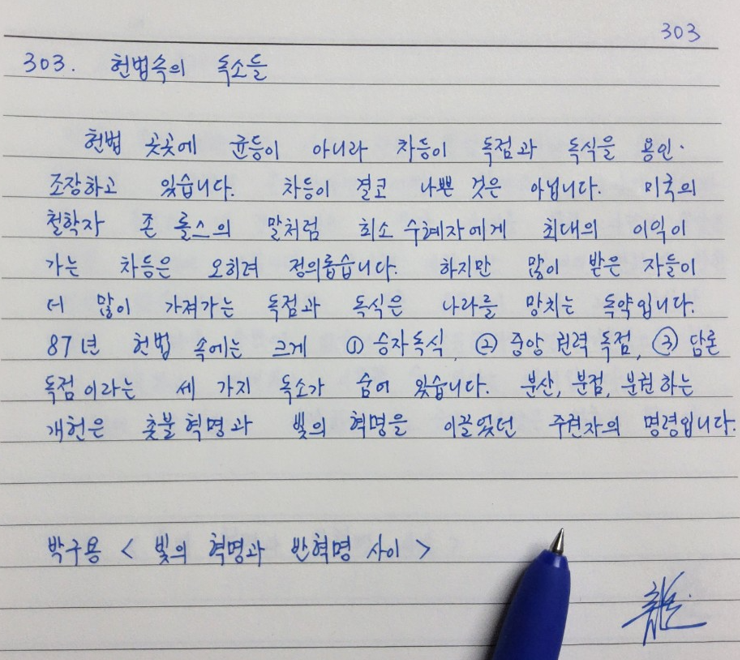 303
303. 헌법속의 독소들
헌법 곳곳에 균등이 아니라 차등이 독점과 독식을 용인·
조장하고 있습니다. 차등이 결코 나쁜 것은 아닙니다. 미국의
철학자 존 롤스의 말처럼 최소 수혜자에게 최대의 이익이
가는 차등은 오히려 정의롭습니다. 하지만 많이 받은 자들이
더 많이 가져가는 독점과 독식은 나라를 망치는 독약입니다.
87년 헌법 속에는 크게 ① 승자독식, ② 중앙 권력 독점, ③ 담론
독점이라는 세 가지 독소가 숨어 있습니다. 분산, 분점, 분권하는
개헌은 촛불혁명과 빛의 혁명을 이끌었던 주권자의 명령입니다.
박구용 < 빛의 혁명과 반혁명 사이 >